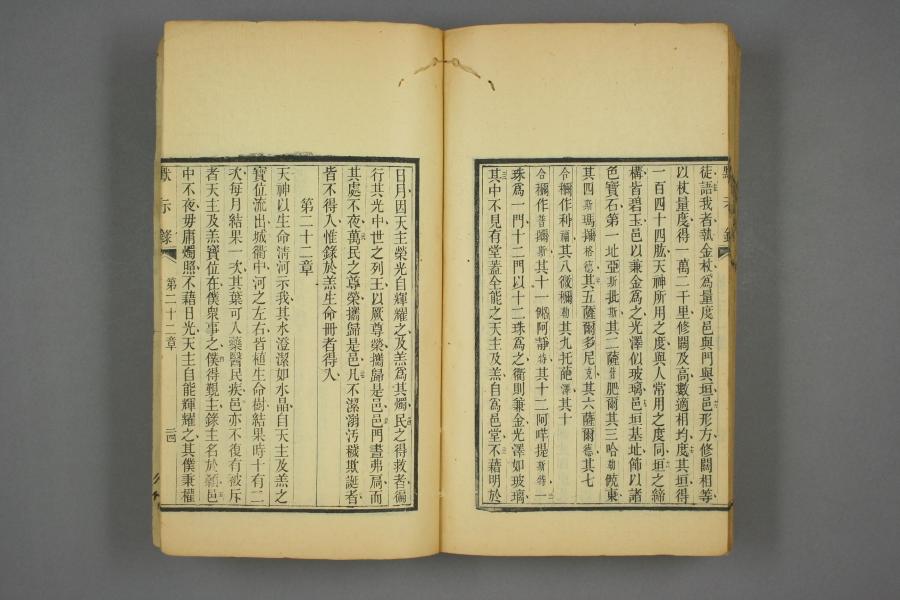 默示錄
徒語我者執金杖爲量度邑與門與垣邑形方修闊相等
以杖量度得一萬二千里修闊及高數適相均度其垣得
一百四十四肱天神所用之度與人常用之度同垣之締
構皆碧玉邑以兼金爲之光澤似玻璃邑垣基址飾以諸
色寶石第一址亞斯批斯其二薩 肥爾其三哈勒 東
其四斯瑪 格德其五薩爾多尼克其六薩爾德其七
令 作利 其八微 勒其九托葩澤其十
令 作普 斯其十一 阿靜特其十二阿 提斯特一
珠爲一門十二門以十二珠爲之衢則兼金光澤如玻璃
其中不見有堂蓋全能之天主及羔自爲邑堂不藉明於
日月因天主榮光自輝耀之及羔爲其燭民之得救者徧
行其光中世之列王以厥尊榮攜歸是邑邑門晝弗扃而
其處不夜萬民之尊榮攜歸是邑凡不潔溺汚穢欺誕者
皆不得入惟錄於羔生命冊者得入
第二十二章
天神以生命淸河示我其水澄潔如水晶自天主及羔之
寶位流出城衢中河之左右皆植生命樹結果時十有二
次每月結果一次其葉可入藥醫民疾邑亦不復有被斥
者天主及羔寶位在僕衆事之僕得覲主錄主名於 邑
中不夜毋庸燭照不藉日光天主自能輝耀之其僕秉權
默示錄 第二十二章